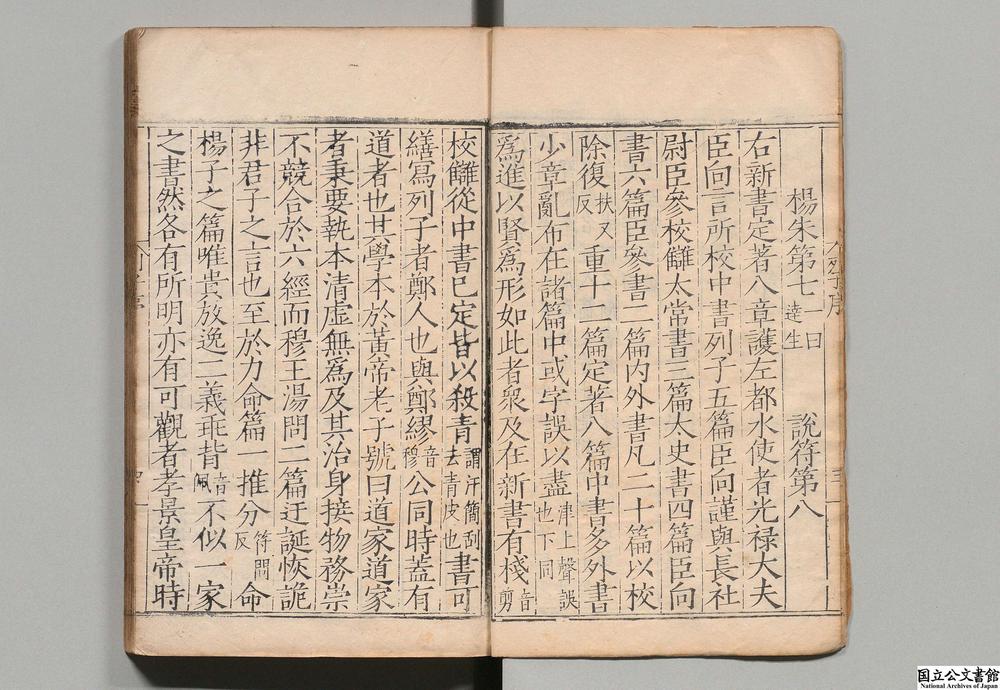 楊朱第七一曰達生 說符第八
右新書定著八章護左都水使者光祿大夫
臣向言所校中書列子五篇臣向謹與長社
尉臣參校讎太常書三篇太史書四篇臣向
書六篇臣參書二篇內外書凡二十篇以校
除復扶又反重十二篇定著八篇中書多外書
少章亂布在諸篇中或字誤以盡津上聲誤也下同
爲進以賢爲形如此者衆及在新書有棧音剪
校讎從中書已定皆以殺青謂汗簡刮去青皮也書可
繕寫列子者鄭人也與鄭繆音穆公同時蓋有
道者也其學本於黃帝老子號曰道家道家
者秉要執本清虛無爲及其治身接物務崇
不競合於六經而穆王湯問二篇迂誕恢詭
非君子之言也至於力命篇一推分符問反命
楊子之篇唯貴放逸二義乖背音佩不似一家
之書然各有所明亦有可觀者孝景皇帝時
国立公文書館
National Archives of Japan